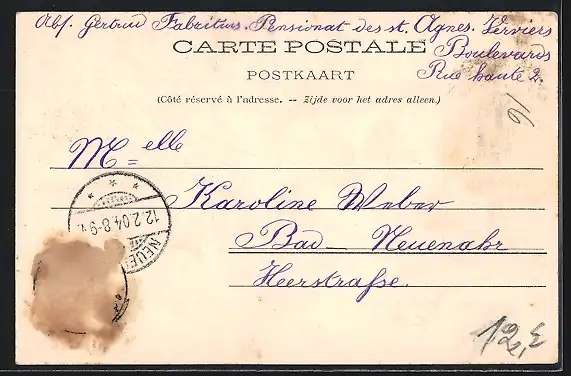 Abs. Gertrud Fabritius. Pensionat des st. Agnes. Verviers
CARTE POSTALE
Boulevards
POSTKAART
Rue haute 2.
(Côté réservé à l'adresse. -- Zijde voor het adres alleen.)
16
Melle
Karoline Weber
12.2.04.8-9
NEUE
Bad-Neuenahr
Heerstraße.